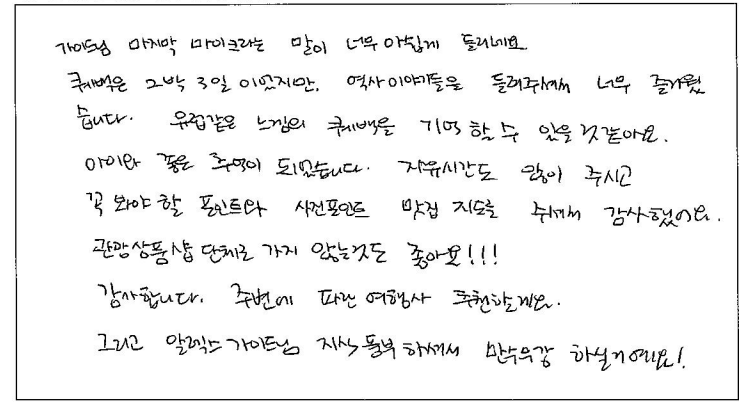 가이드님 마지막 마이크라는 말이 너무 아쉽게 들리네요.
퀘백은 2박 3일 이었지만, 역사이야기들을 들려주셔서 너무 즐거웠
습니다. 유럽같은 느낌의 퀘백을 기억 할 수 있을 것 같아요.
아이와 좋은 추억이 되었습니다. 자유시간도 많이 주시고
꼭 봐야 할 포인트와 사진포인트 맛집 지도를 주셔서 감사했어요.
관광상품샵 단체로 가지 않는것도 좋아요!!!
감사합니다. 주변에 파란 여행사 추천할게요.
그리고 알렉스 가이드님 지식 풍부 하셔서 만수무강 하실거예요!